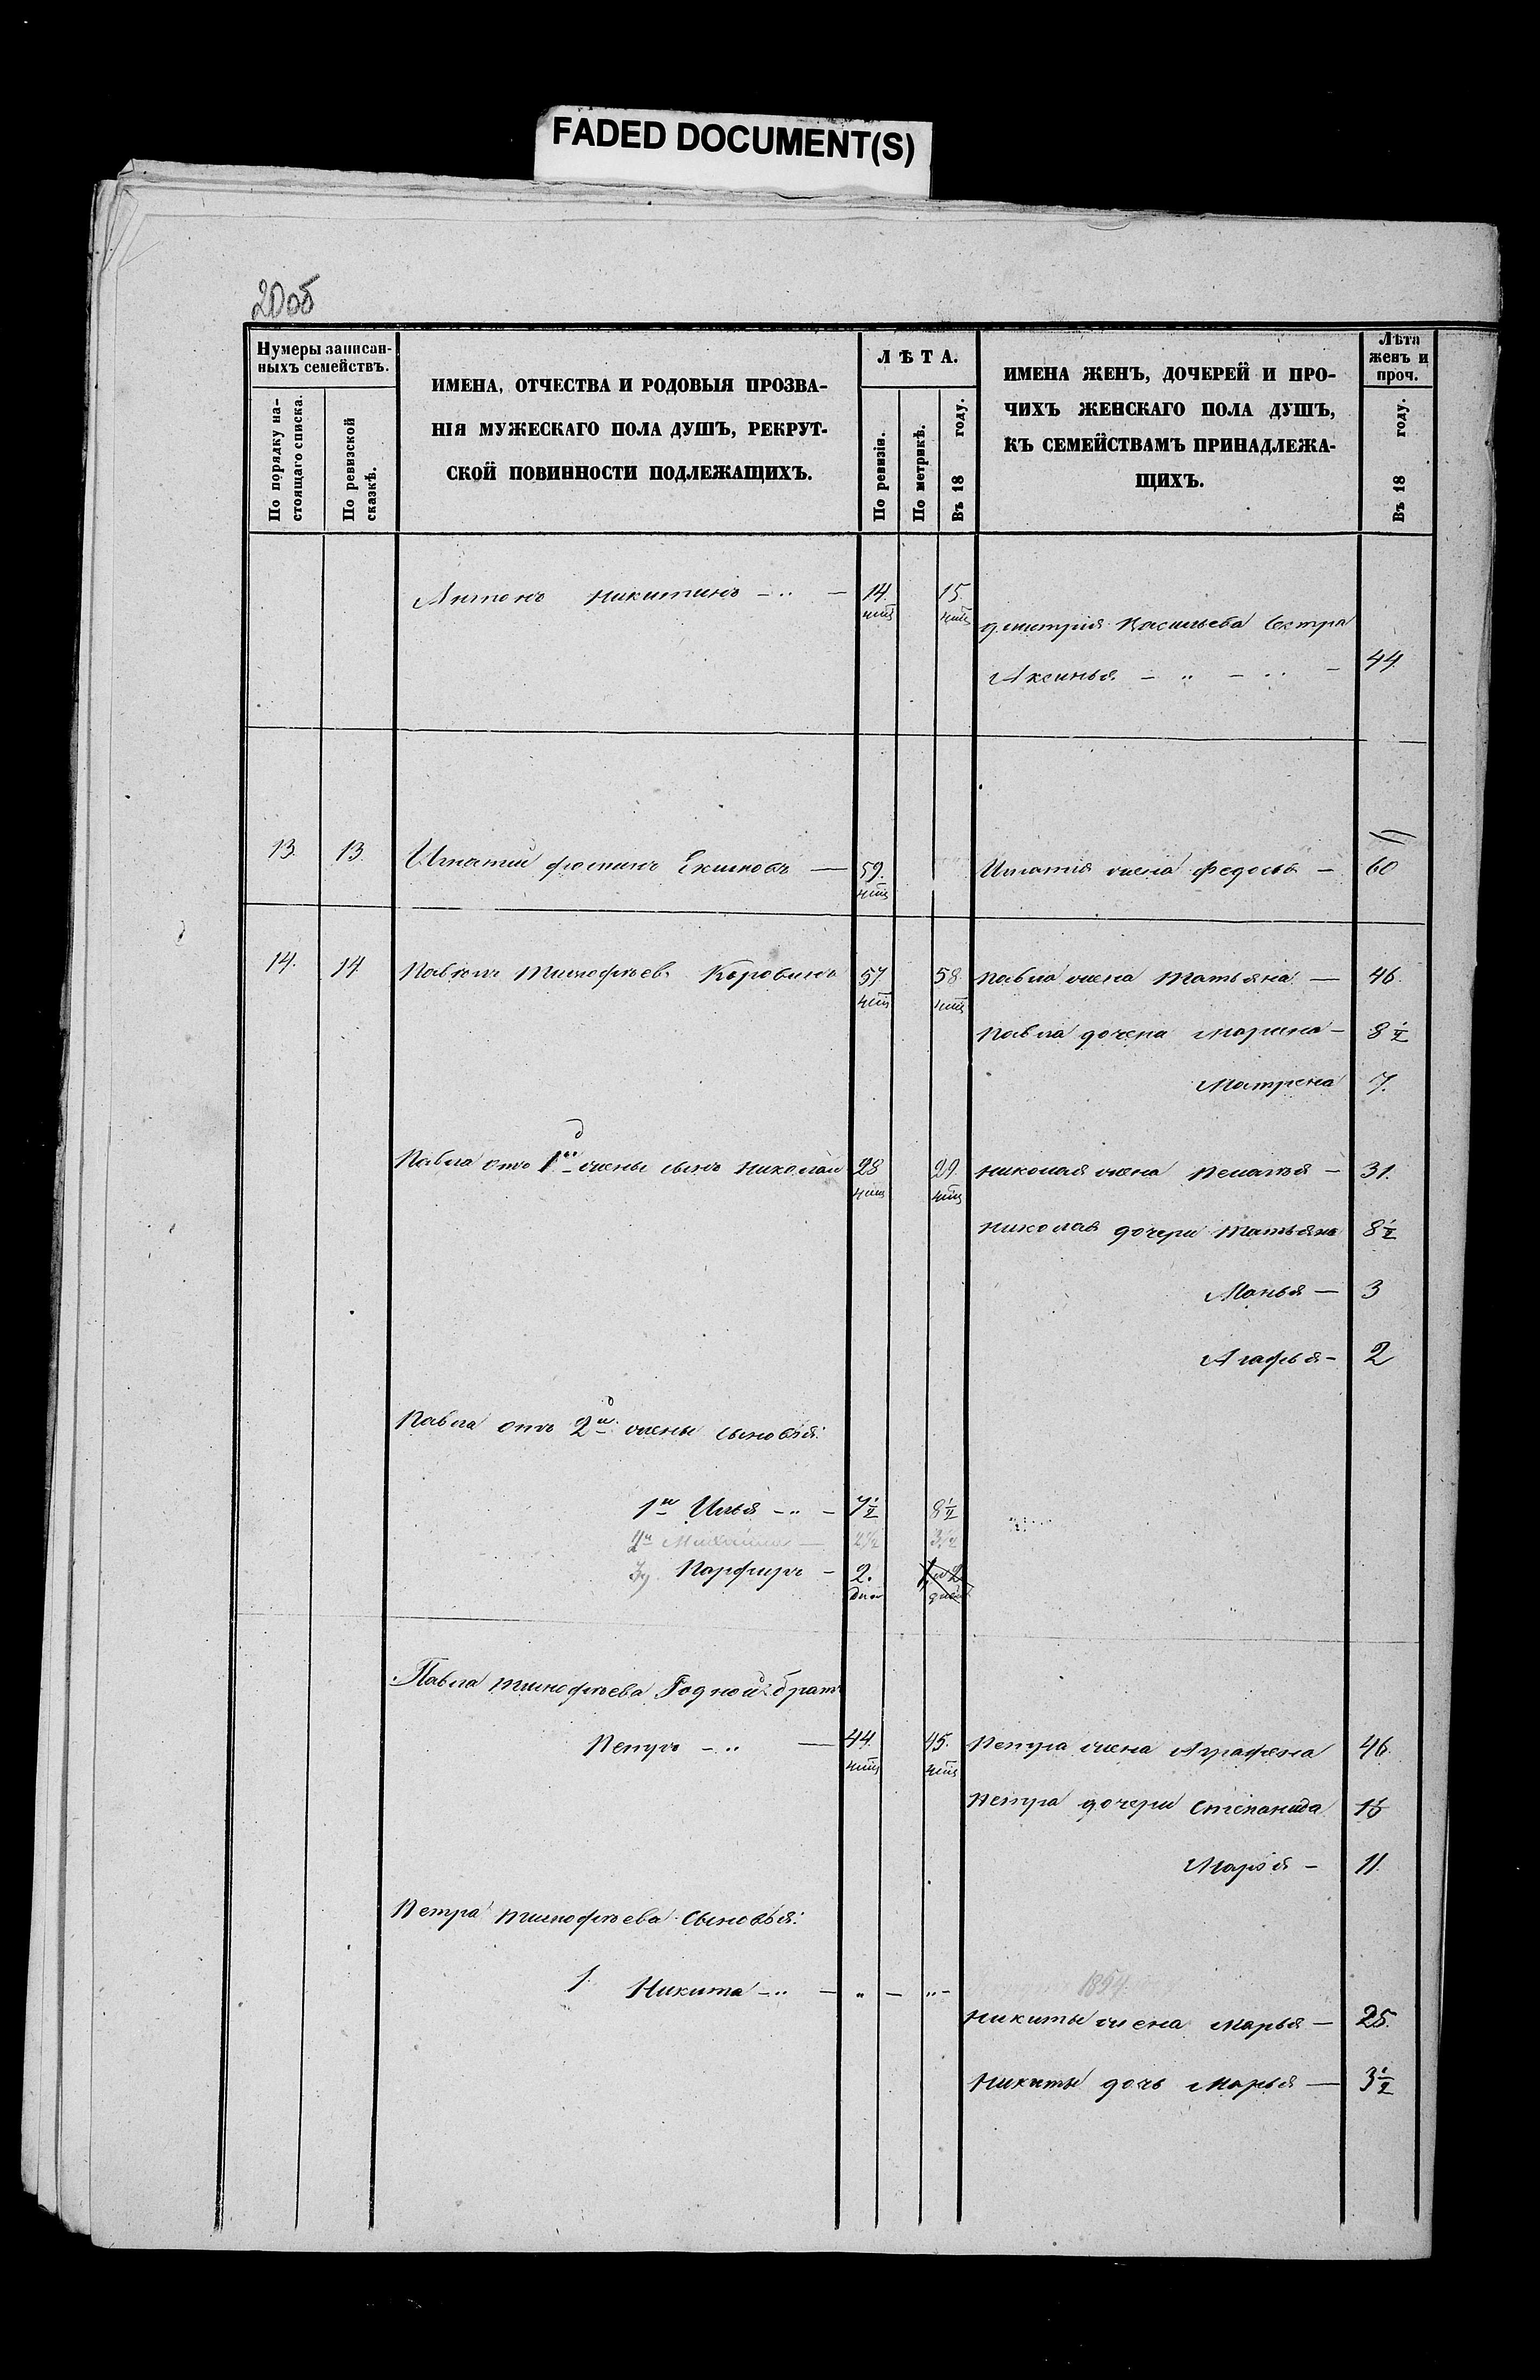 FADED DOCUMENT(S)
20об
Нумеры записан-
ныхъ семействъ.
По порядку на-
стоящаго списка.
По ревизской
сказкѣ.
ИМЕНА, ОТЧЕСТВА И РОДОВЫЯ ПРОЗВА-
НІЯ МУЖЕСКАГО ПОЛА ДУШЪ, РЕКРУТ-
СКОЙ ПОВИННОСТИ ПОДЛЕЖАЩИХЪ.
ЛѢТА.
По ревизіи.
По метрикѣ.
Въ 18 году.
ИМЕНА ЖЕНЪ, ДОЧЕРЕЙ И ПРО-
ЧИХЪ ЖЕНСКАГО ПОЛА ДУШЪ,
КЪ СЕМЕЙСТВАМЪ ПРИНАДЛЕЖА-
ЩИХЪ.
Лѣта
женъ и
проч.
Въ 18 году.
Антонъ Никитинъ 14. 15.
Дмитрия Васильева Сестра
Аксинья 44.
13. 13. Игнатий Екимовъ 59. Игнатия жена Федосья 60
14. 14 Павелъ Тимофѣевъ Коровинъ 57 58. Павла жена Татьяна 46.
Павла Марина 8½
Матрена 7.
Павла отъ 1ой жены сынъ Николай 28 29. Николая жена Пелагея 31.
Николая дочери Татьяна 8½
Марья 3
Агафья 2
Павла отъ 2й жены сыновья:
1й Илья 7½ 8½
2й Михаилъ 2½ 3½
3й Парфиръ 2. дня
Павла Тимофѣева Родной братъ
Петръ 44. 45. Петра жена Аграфена 46.
Петра дочери Степанида 16
Марья 11.
Петра Тимофѣева Сыновья:
1. Никита 1854
Никиты жена Марья 25.
Никиты дочь Марья 3½